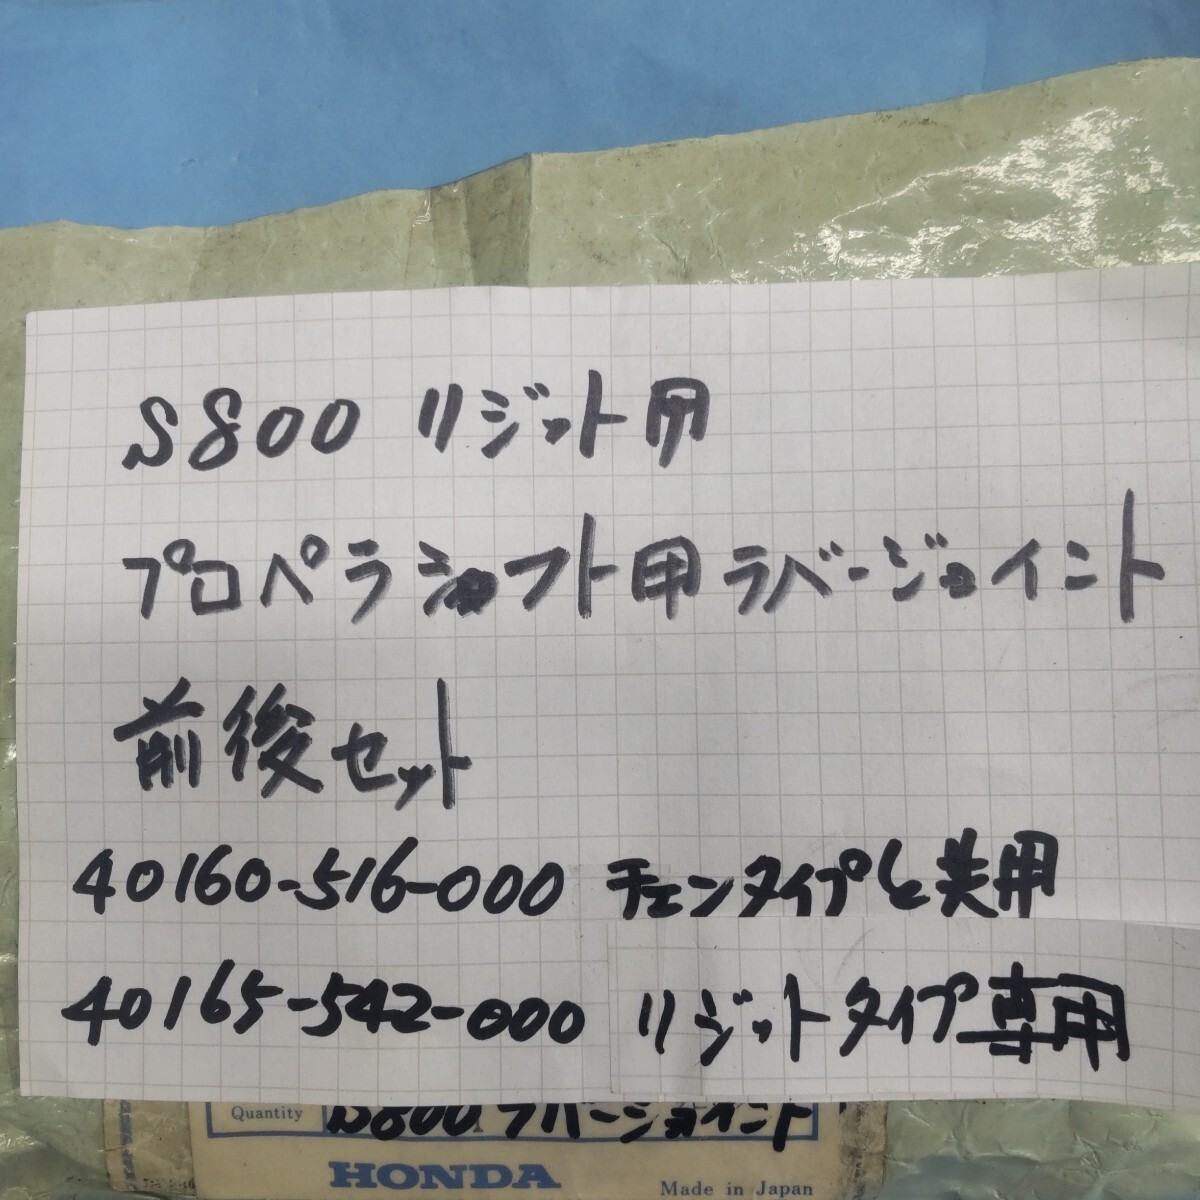 S800 リジット用
プロペラシャフト用ラバージョイント
前後セット
40160-516-000 チェンタイプと共用
40165-542-000 リジットタイプ専用
Quantity S800 ラバージョイント
HONDA
Made in Japan